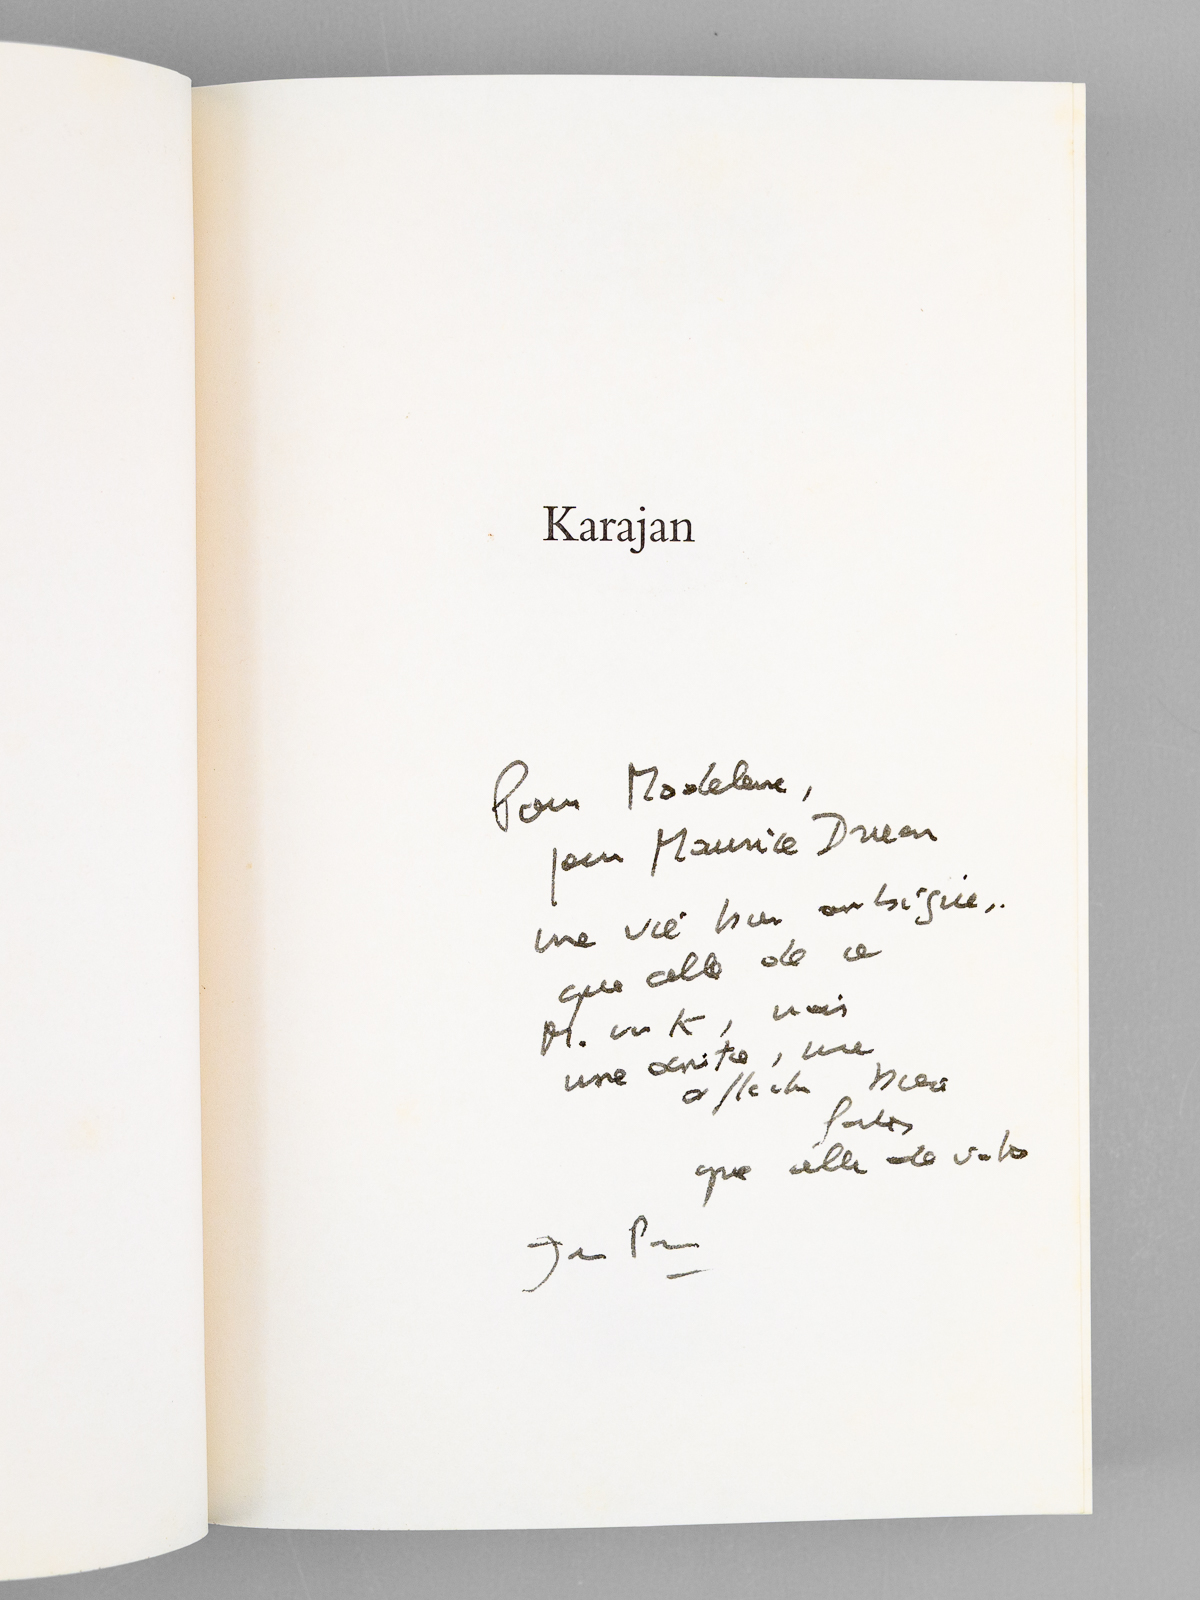 Karajan
Pour Madeleine,
pour Maurice Druon
une vie bien ambiguë,.
que celle de ce
M. von K, mais
une amitié, une
affection bien
fortes
que celle de votre
Jean